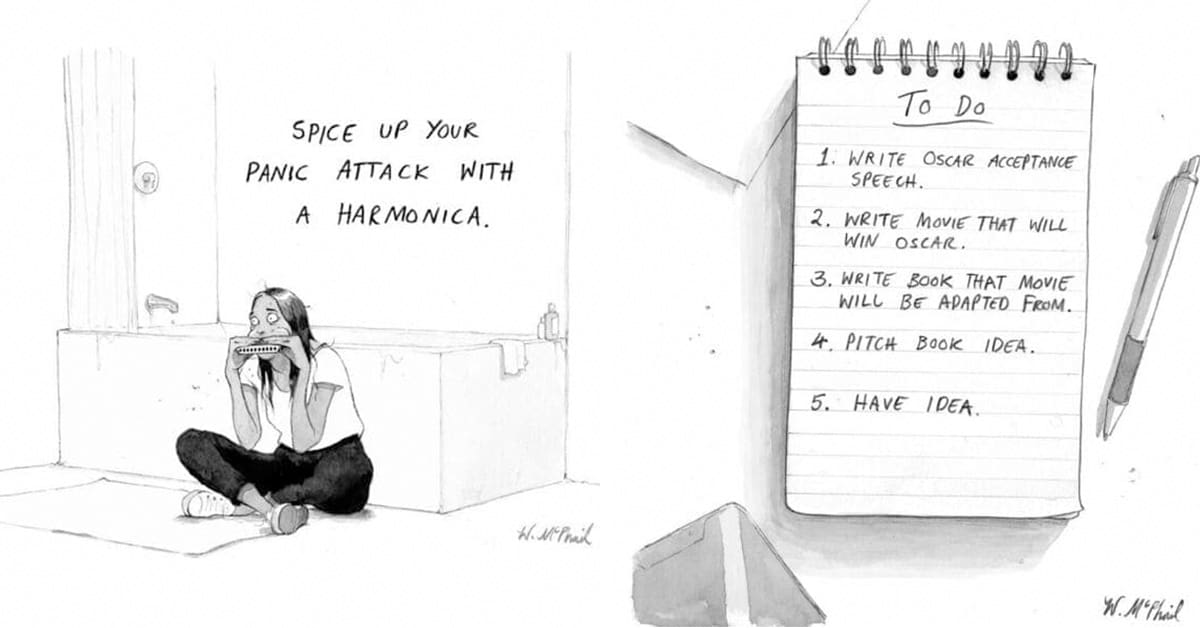 SPICE UP YOUR
PANIC ATTACK WITH
A HARMONICA.
W. McPhail
To Do
1. WRITE OSCAR ACCEPTANCE
SPEECH.
2. WRITE MOVIE THAT WILL
WIN OSCAR.
3. WRITE BOOK THAT MOVIE
WILL BE ADAPTED FROM.
4. PITCH BOOK IDEA.
5. HAVE IDEA.
W. McPhail